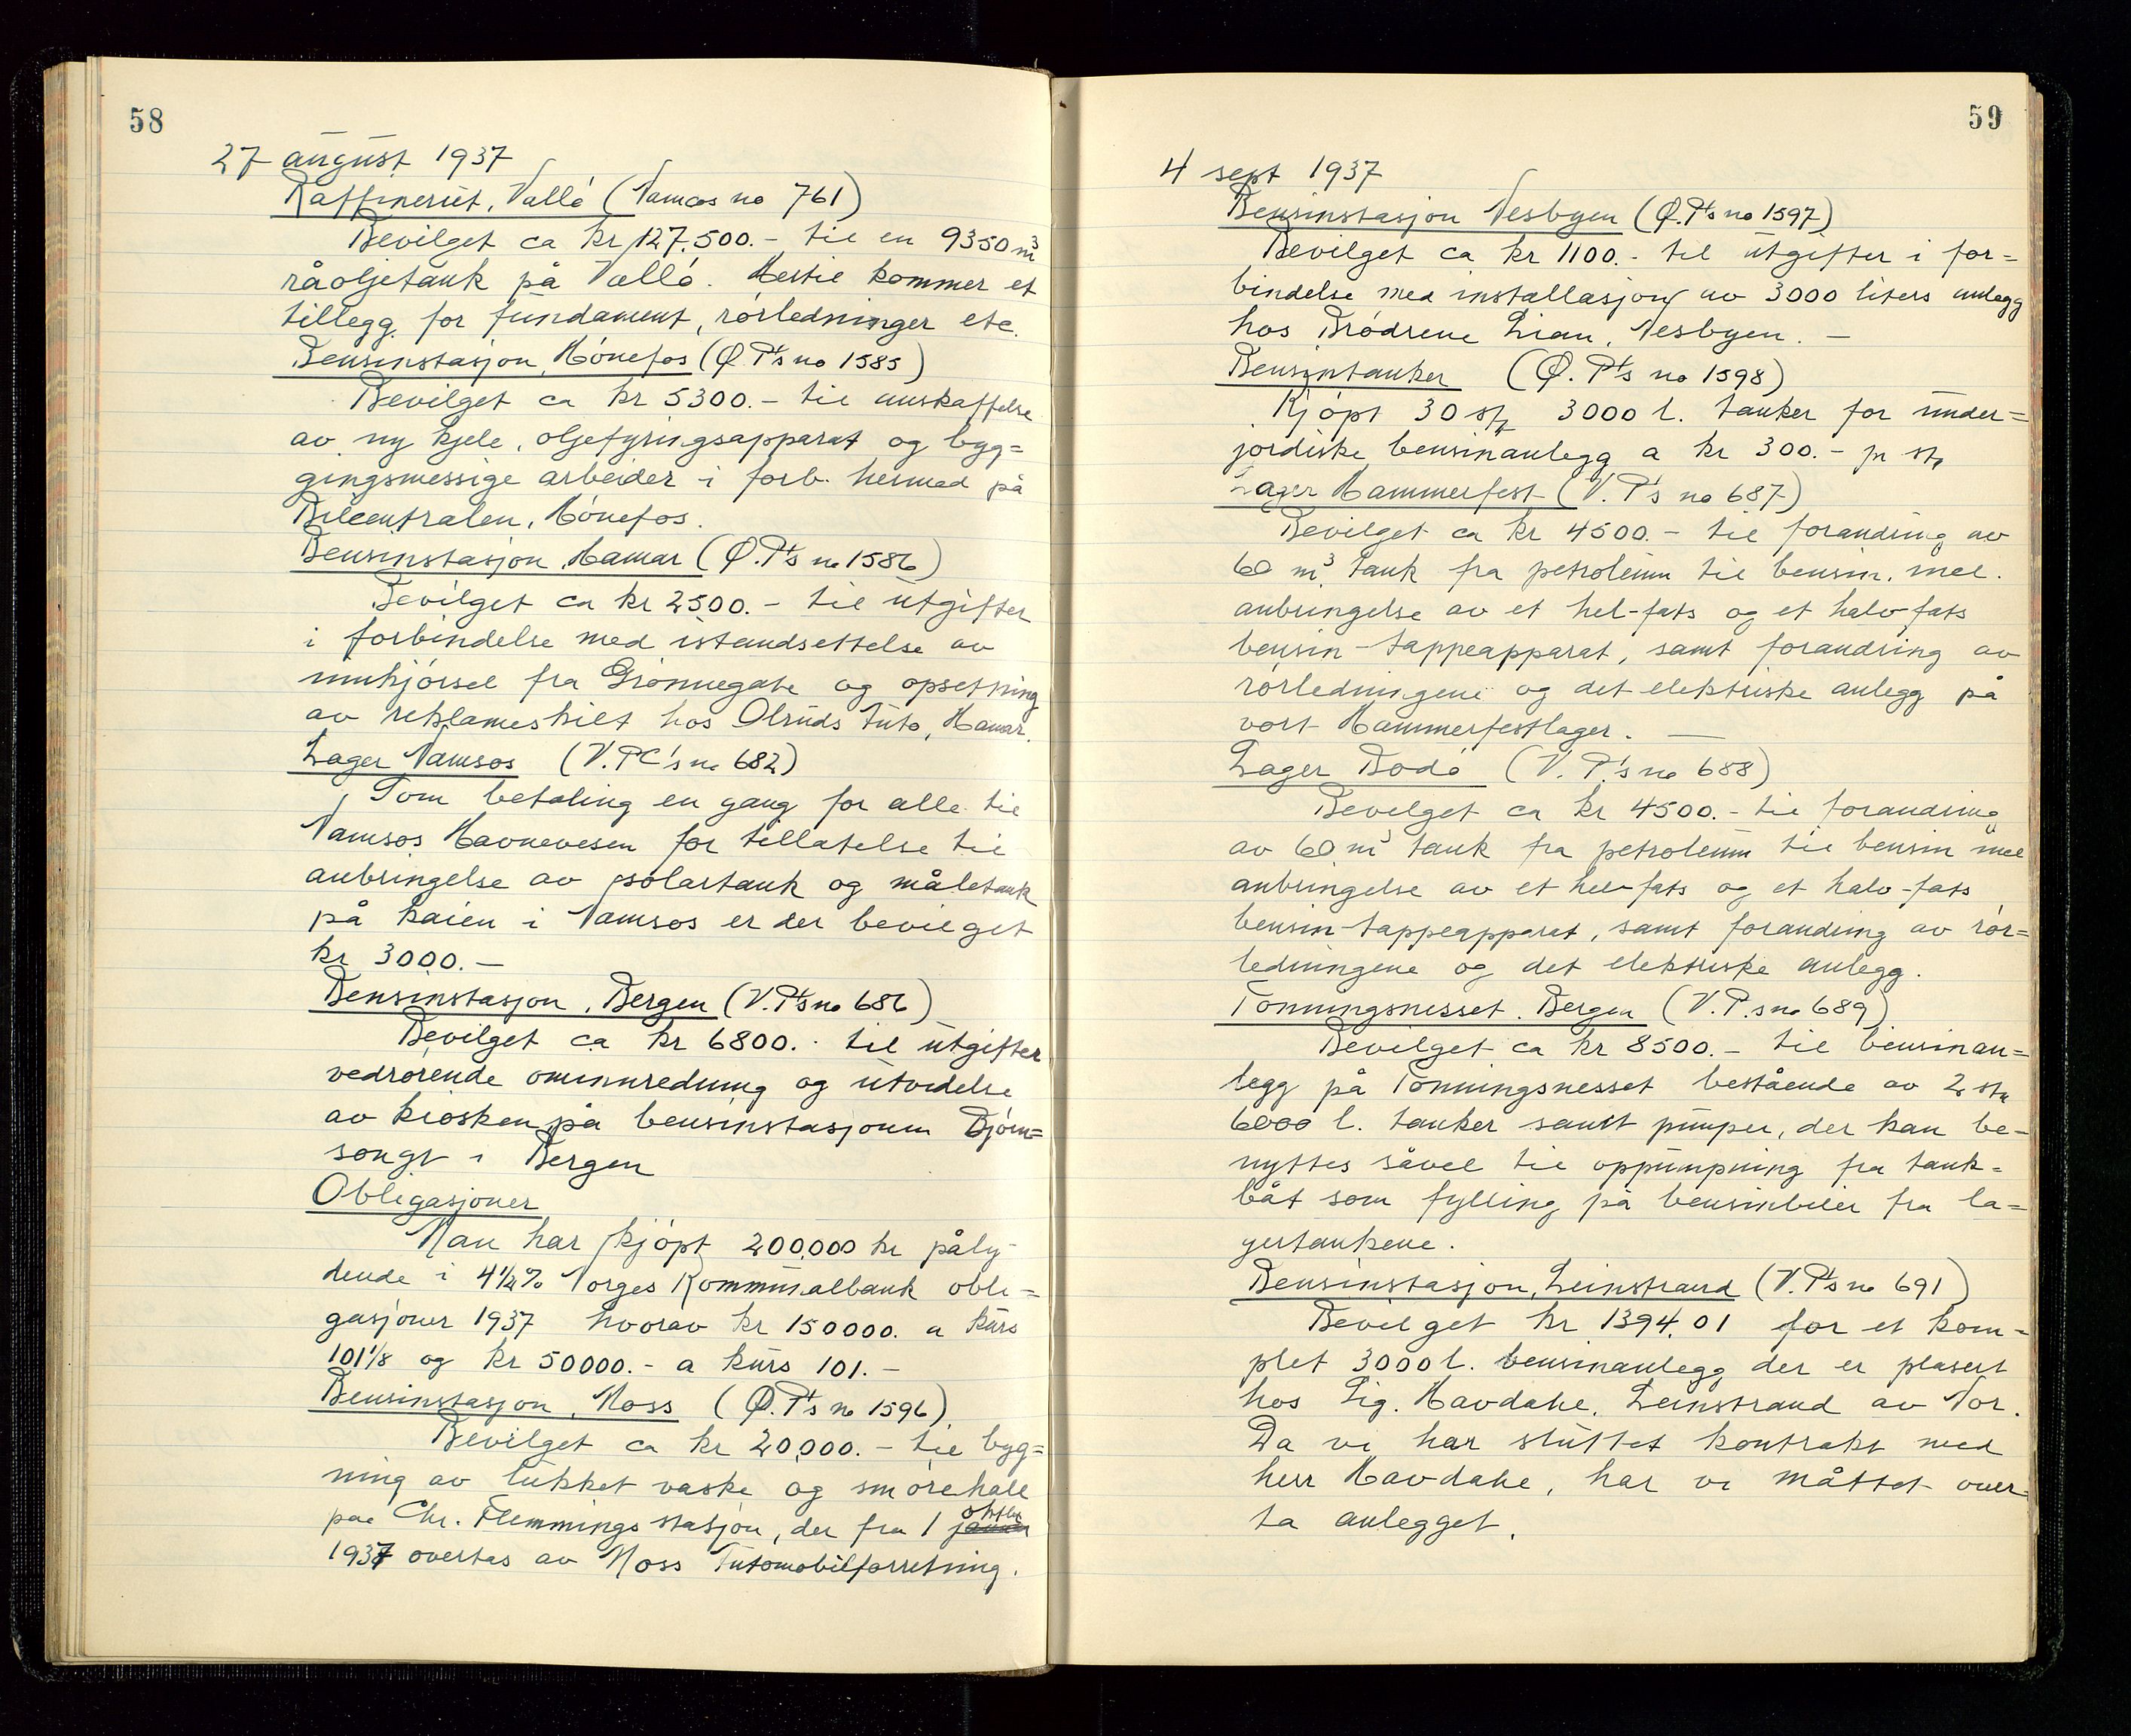 58
27 august 1937
Raffineriet, Vallö (Vamcos no 761)
Bevilget ca kr 127.500.- til en 9350 m³
råoljetank på Vallö. Hertil kommer et
tillegg for fundament, rörledninger etc.
Bensinstasjon, Hönefos (Ø.Pt's no 1585)
Bevilget ca kr 5300.- til anskaffelse
av ny kjele, oljefyringsapparat og byg=
gingsmessige arbeider i forb. hermed på
Bilcentralen, Hönefos.
Bensinstasjon, Hamar (Ø.Pt's no 1586)
Bevilget ca kr 2500.- til utgifter
i forbindelse med istandsettelse av
innkjörsel fra Grönnegate og opsetning
av reklameskilt hos Olruds Auto, Hamar.
Lager Namsos (V.PC's no 682)
Som betaling en gang for alle til
Namsos Havnevesen for tillatelse til
anbringelse av solartank og måletank
på kaien i Namsos er der bevilget
kr 3000.-
Bensinstasjon, Bergen (V.Pt's no 686)
Bevilget ca kr 6800.- til utgifter
vedrörende ominnredning og utvidelse
av kiosken på bensinstasjonen Björn=
songt i Bergen
Obligasjoner
Man har kjöpt 200.000 kr påly-
dende i 4½% Norges Kommunalbank obli=
gasjoner 1937 hvorav kr 150000. a kurs
101 1/8 og kr 50000.- a kurs 101.-
Bensinstasjon, Moss (Ø.Pt's no 1596)
Bevilget ca kr 20.000.- til byg=
ning av lukket vaske og smörehall
paa Chr. Flemmings stasjon, der fra 1 oktbr januar
1937 overtas av Moss Automobilforretning.
59
4 sept 1937
Bensinstasjon Nesbyen (Ø.Pt's no 1597)
Bevilget ca kr 1100.- til utgifter i for=
bindelse med installasjon av 3000 liters anlegg
hos Brödrene Lian, Nesbyen. -
Bensintanker (Ø.Pt's no 1598)
Kjöpt 30 stk 3000 l. tanker for under=
jordiske bensinanlegg a kr 300.- pr stk
Lager Hammerfest (V.Pt's no 687)
Bevilget ca kr 4500.- til forandring av
60 m³ tank fra petroleum til bensin, incl.
anbringelse av et hel-fats og et halv fats
bensin-tappeapparat, samt forandring av
rörledningene og det elektriske anlegg på
vort Hammerfestlager. -
Lager Bodö (V.Pt's no 688)
Bevilget ca kr 4500.- til forandring
av 60 m³ tank fra petroleum til bensin incl
anbringelse av et hel-fats og et halv-fats
bensin-tappeapparat, samt forandring av rör=
ledningene og det elektriske anlegg.
Tonningsnesset, Bergen (V.P.s no 689)
Bevilget ca kr 8500.- til bensinan=
legg på Tonningsnesset bestående av 2 stk
6000 l. tanker samt pumper, der kan be-
nyttes såvel til oppumpning fra tank-
båt som fylling på bensinbiler fra la=
gertankene.
Bensinstasjon, Leinstrand (V.Pt's no 691)
Bevilget kr 1394.01 for et kom-
plet 3000 l. bensinanlegg der er plasert
hos Sig. Havdahe, Leinstrand av Nor.
Da vi har sluttet kontrakt med
herr Havdahe, har vi måttet over-
ta anlegget.